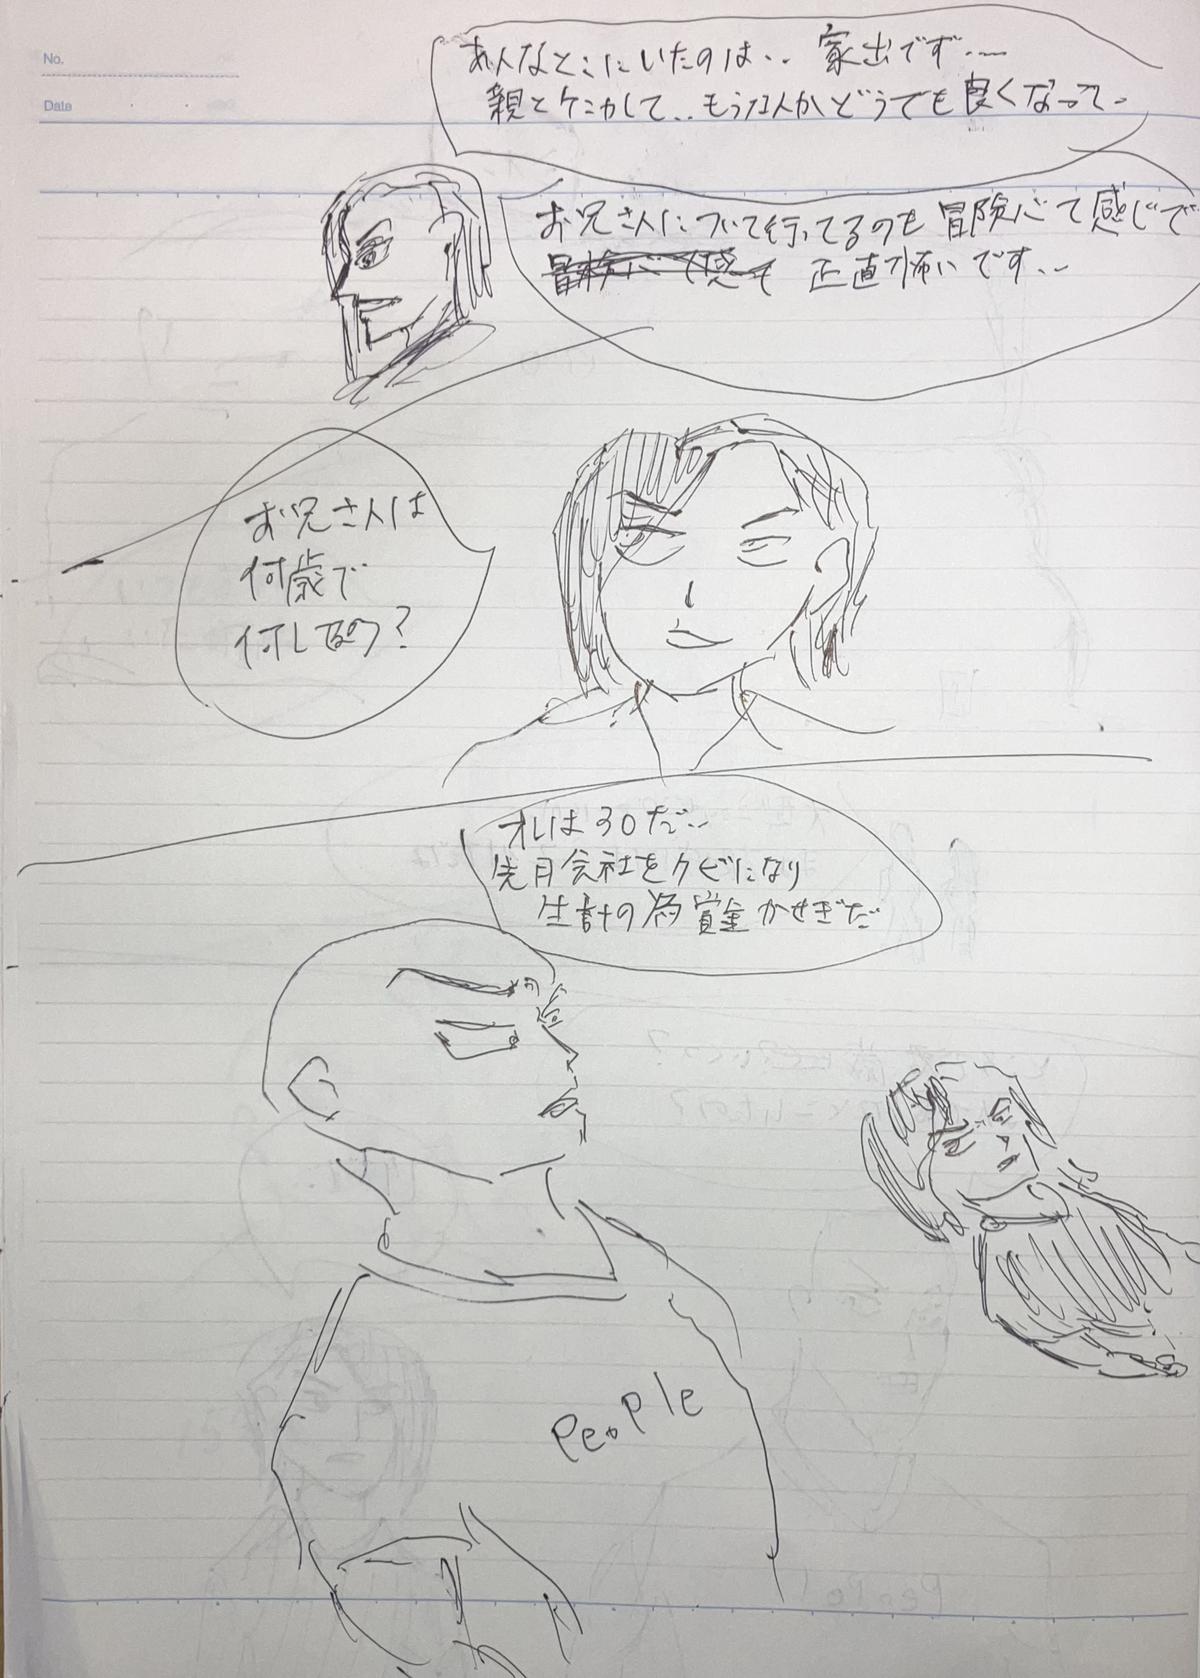 No.
Date
あんなとこにいたのは‥ 家出です‥‥
親とケンカして‥もうなんかどうでも良くなって‥
お兄さんについて行ってるのも冒険心て感じで
正直怖いです‥
お兄さんは
何歳で
何してるの?
オレは30だ‥
先月会社をクビになり
生計の為賞金かせぎだ
People